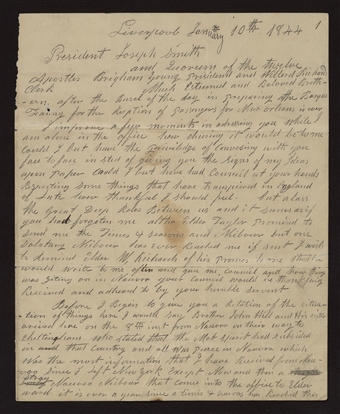 Liverpool January 10th 1844
1
President Joseph Smith
and Quorem of the twelve
Apostles Brigham Young President and Willard Richards
Clerk Much Esteemed and Beloved Breth-
ern, after the toils of the day in preparing the Barque
Fanny for the Reption of passengers for New orleans is over
I improve a few moments in adressing you while I
am alone in the office how chearing it would be to me
could I but have the privilidge of Conversing with you
face to face in sted of giving you the signs of my Ideas
upon paper Could I but have had Council at your hands
Respecting some things that have transpired in England
of late how thankful I should feel. but alass
the Great Deep Roles Between us and it seems as if
you had forgoten me. altho Elder Taylor promised to
send me the Times & seasons and Neibour but one
Solatary Neibour has ever Reached me if sent I wish
to remind Elder W Richards of his promis to me that he
would write to me often and give me Council and how things
was going on in Nauvoo your Council would be thankfully
Received and adheard to by your humble servent
Before I Begin to give you a Relation of the situa-
tion of things here I would say Brother John Hill and his
arrived here on the 9th inst from Nauvoo on their way to
who stated that the Most part had
in that Country and all was peace in Nauvoo which
Was the most information that I have Received from
since I left New York Except Now and then a
Nauvoo Neibour that come into the office to Elder
Ward it is even a year since a has Reached this